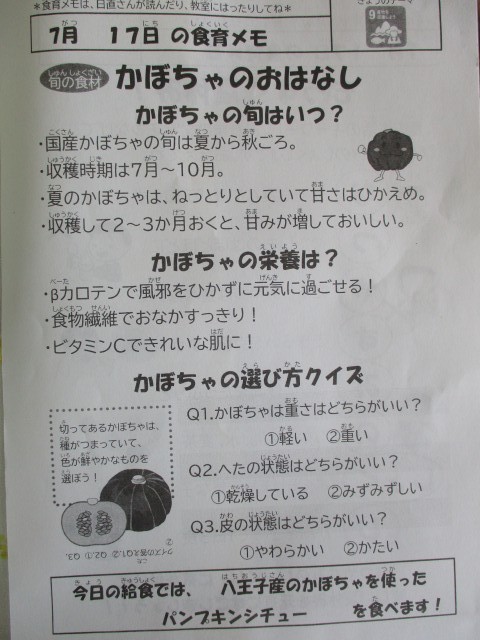 ＊食育メモは、日直さんが読んだり、教室にはったりしてね＊
きょうのテーマ
9
7月 17日 の食育メモ
旬の食材 かぼちゃのおはなし
かぼちゃの旬はいつ？
・国産かぼちゃの旬は夏から秋ごろ。
・収穫時期は7月～10月。
・夏のかぼちゃは、ねっとりとしていて甘さはひかえめ。
・収穫して2～3か月おくと、甘みが増しておいしい。
かぼちゃの栄養は？
・βカロテンで風邪をひかずに元気に過ごせる！
・食物繊維でおなかすっきり！
・ビタミンCできれいな肌に！
かぼちゃの選び方クイズ
切ってあるかぼちゃは、
種がつまっていて、
色が鮮やかなものを
選ぼう！
Q1.かぼちゃは重さはどちらがいい？
①軽い ②重い
Q2.へたの状態はどちらがいい？
①乾燥している ②みずみずしい
Q3.皮の状態はどちらがいい？
①やわらかい ②かたい
クイズの答え Q1.② Q2.① Q3.②
今日の給食では、 八王子産のかぼちゃを使った
パンプキンシチュー を食べます！